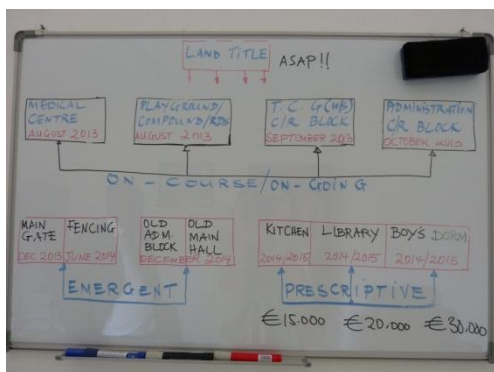 LAND TITLE
ASAP!!
MEDICAL
CENTRE
AUGUST 2013
PLAYGROUND/
COMPOUND/RDS
AUGUST 2013
T. C. G (H/S)
C/R BLOCK
SEPTEMBER 2013
ADMINISTRATION
C/R BLOCK
OCTOBER 2013
ON-COURSE/ON-GOING
MAIN
GATE
DEC-2013
FENCING
JUNE 2014
OLD
ADM.
BLOCK
OLD
MAIN
HALL
DECEMBER 2014
KITCHEN
2014/2015
LIBRARY
2014/2015
BOY'S DORM.
2014/2015
EMERGENT
PRESCRIPTIVE
€15.000 €20.000 €30.000